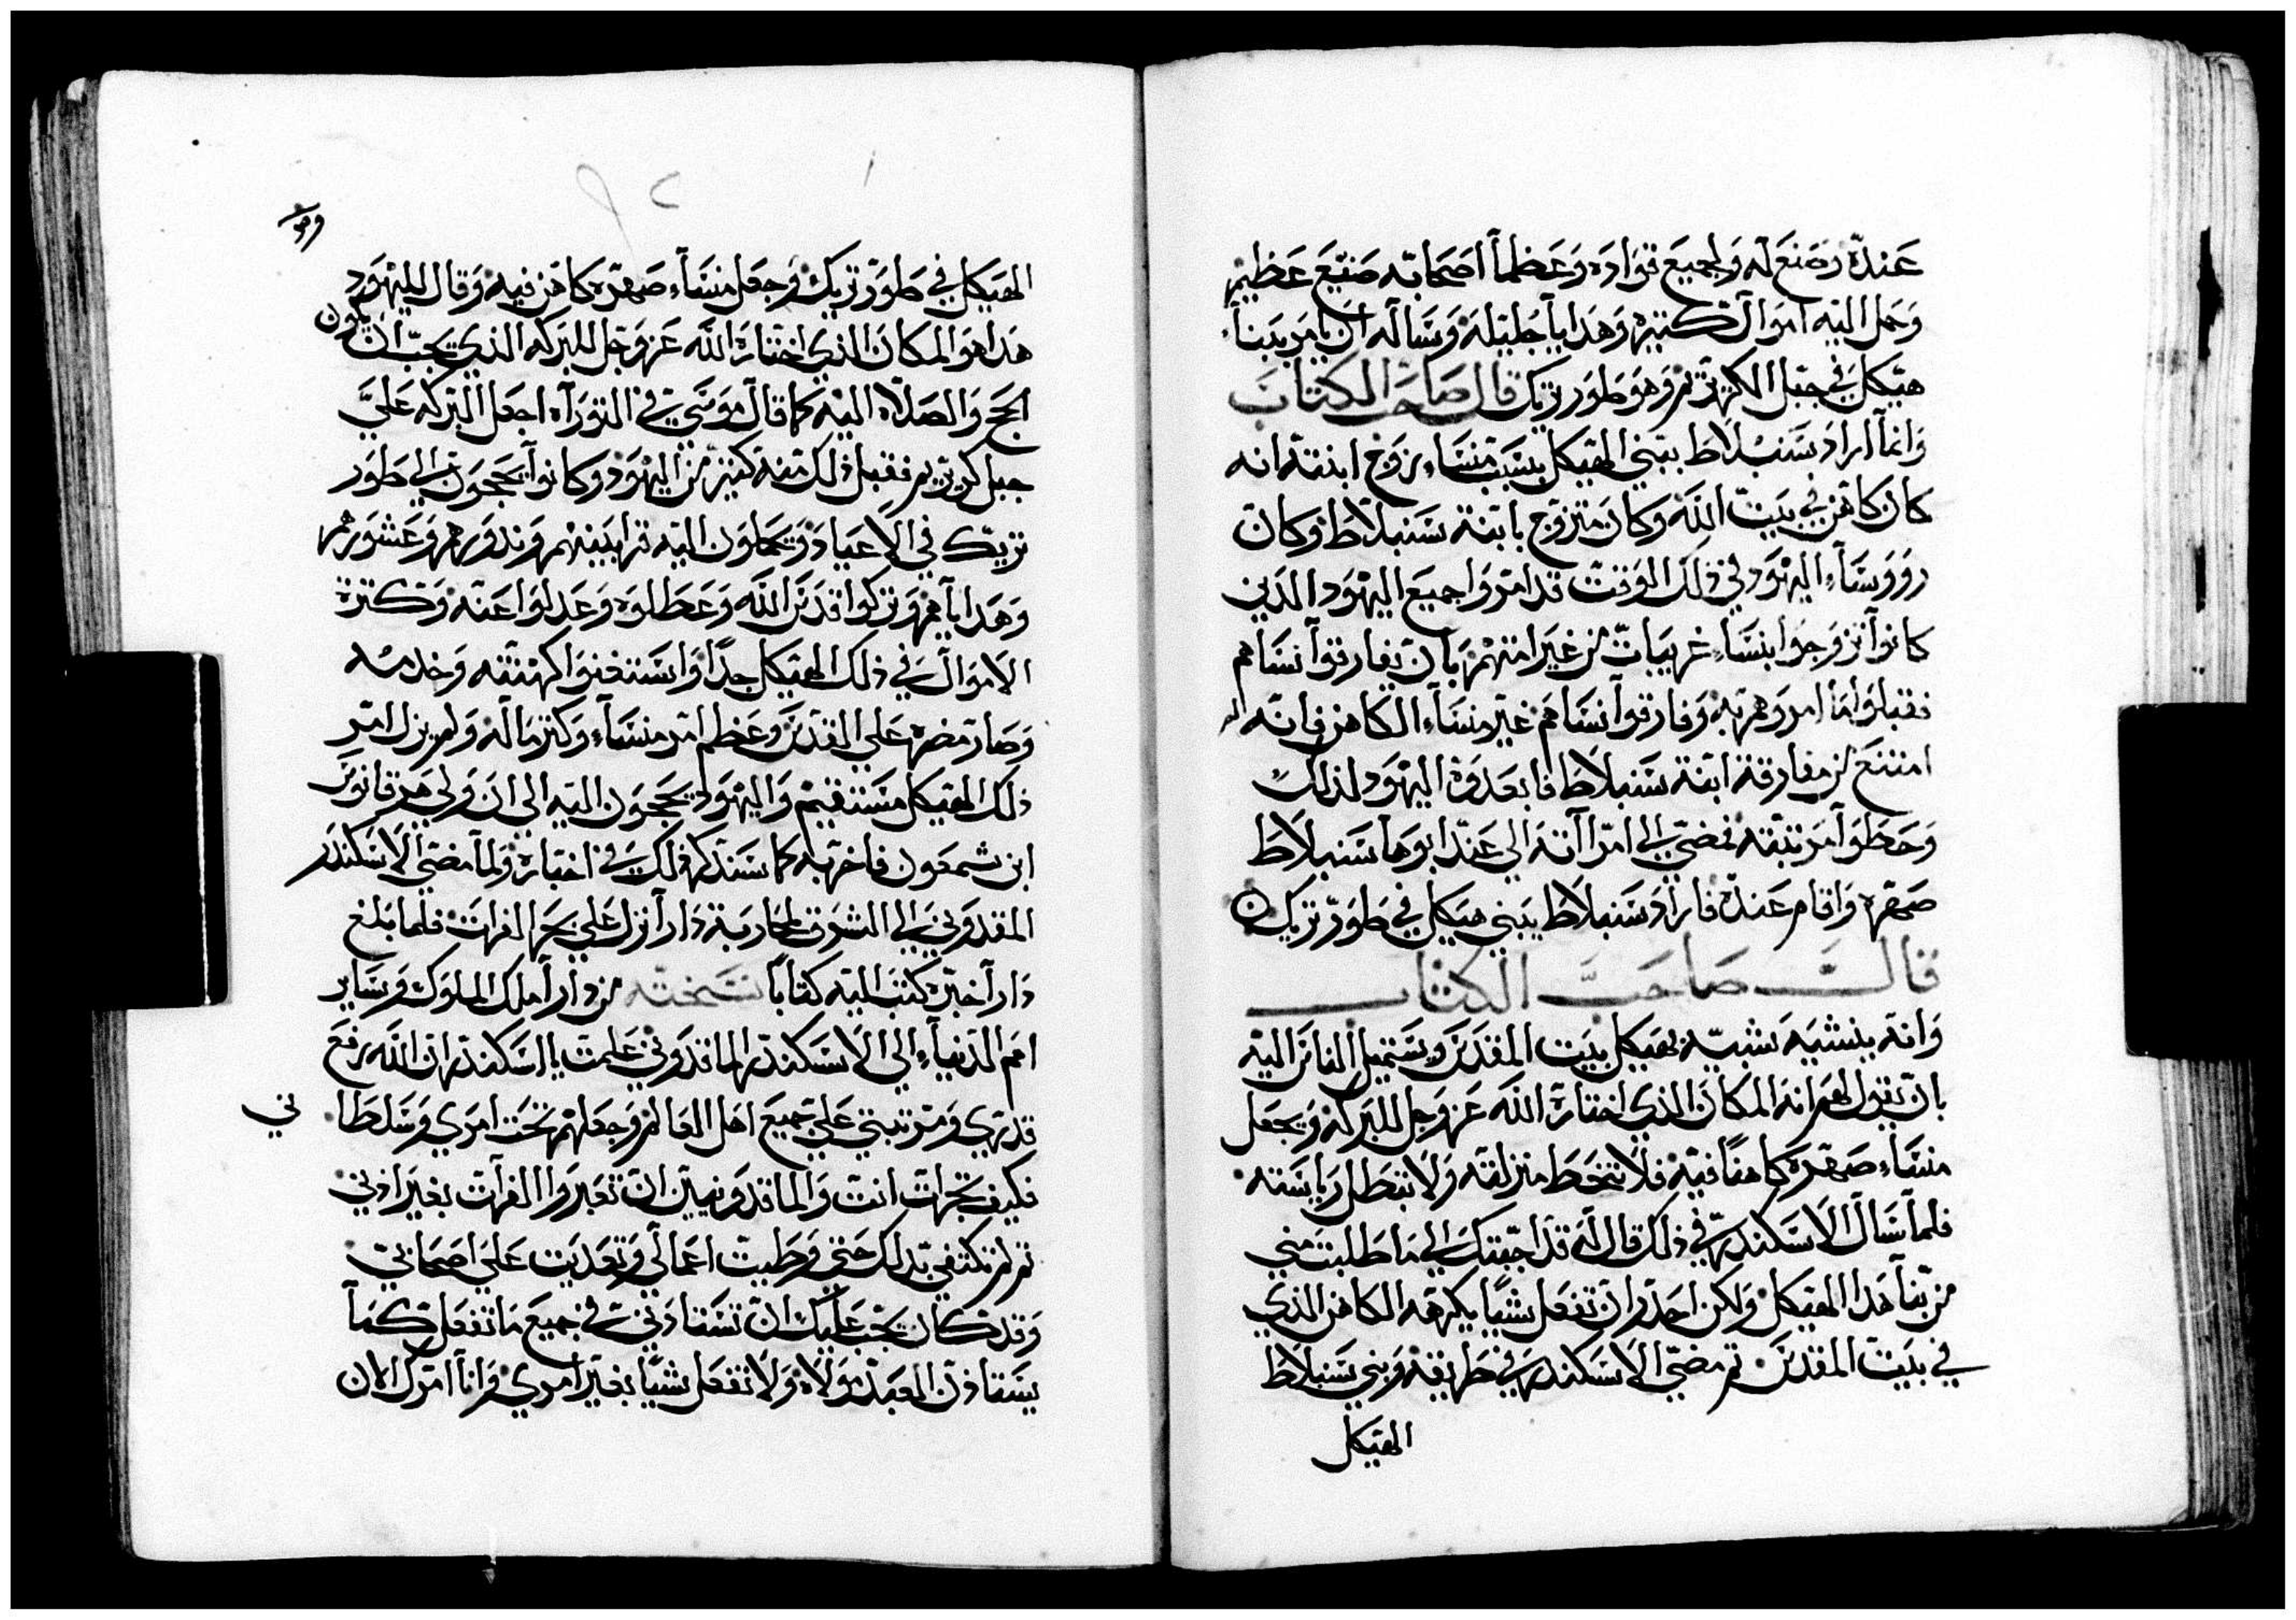 عنده وصنع له ولجميع قواده وعظمآ اصحابه صنيع عظيم
وحمل اليه اموال كتيره وهدايا جليله وساله ان يامر ببنآء
هيكل في جبل الكهرتزيم وهو طور تزيك قال صاحب الكتاب
وانمآ اراد سنبلاط يبني الهيكل بسبب منسآء زوج ابنته انه
كان كاهن في بيت الله وكان متزوج بابنة سنبلاط وكان
رووسآء اليهود في ذلك الوقت قد امروا جميع اليهود الذين
كانوآ تزوجوا بنسآء غريبات من غير امتهم بان يفارقوآ نساهم
فقبلوا ما امروهم به وفارقوآ نساهم غير منسآء الكاهن فانه
امتنع من مفارقة ابنة سنبلاط فابعدوه اليهود لذلك
وحطوآ مرتبته فمضي الي امراته الي عند ابوها سنبلاط
صهره واقام عنده فاراد سنبلاط يبني هيكل في طور تزيك
قال صاحب الكتاب
وانه ينشيه شبيه بهيكل بيت المقدس ويستميل الناس اليه
بان يقول لهم انه المكان الذي اختاره الله عز وجل للبركه ويجعل
منسآء صهره كاهنًا فيه فلا تنحط منزلته ولا تبطل رياسته
فلما سال الاسكندر في ذلك قال له قد اجبتك الي ما طلبت مني
من بنآ هدا الهيكل ولكن احدر ان تفعل شيًا يكرهه الكاهن الذي
في بيت المقدس تم مضي الاسكندر في طريقه وبني سنبلاط
الهيكل
الهيكل في طور تزيك وجعل منسآء صهره كاهن فيه وقال لليهود
هدا هو المكان الذي اختاره الله عز وجل للبركه الذي يجب ان يكون
الحج والصلاه اليه كما قال موسي في التوراه اجعل البركه علي
جبل كريزيم فقبل ذلك منه كتير من اليهود وكانوآ يحجون الي طور
تزيك في الاعياد ويحملون اليه قرابينهم وندورهم وعشورهم
وهداياهم وتركوا قدس الله وعطلوه وعدلوا عنه وكترة
الاموال في ذلك الهيكل جدًا واستغنوا كهنته وخدمته
وصار مضره علي القدس وعظم امر منسآء وكتر ماله ولم يزل امر
ذلك الهيكل مستقيم واليهود يحجون اليه الي ان ولي هرقانوس
ابن شمعون فاخربه كما سندكر ذلك في اخباره ولما مضي الاسكندر
المقدوني الي الشرق لمحاربة دارآ نزل علي بحر الفرات فلما بلغ
دارآ خبره كتب اليه كتابًا نسخته من دارآ ملك الملوك وساير
امم الدنيآء الي الاسكندر الماقدوني علمت يا اسكندر ان الله رفع
قدري ومرتبتي علي جميع اهل العالم وجعلهم تحت امري وسلطاني
فكيف تجرات انت والماقدونيين ان تعبروا الفرات بغير ادني
تم لم تكتفي بدلك حتي وطيت اعمالي وتعديت علي اصحابي
وقد كان يجب عليك ان تستادني في جميع ما تفعل كمآ
يستادن العبد مولاه ولا تفعل شيًا بغير امري وانآ امرك الان